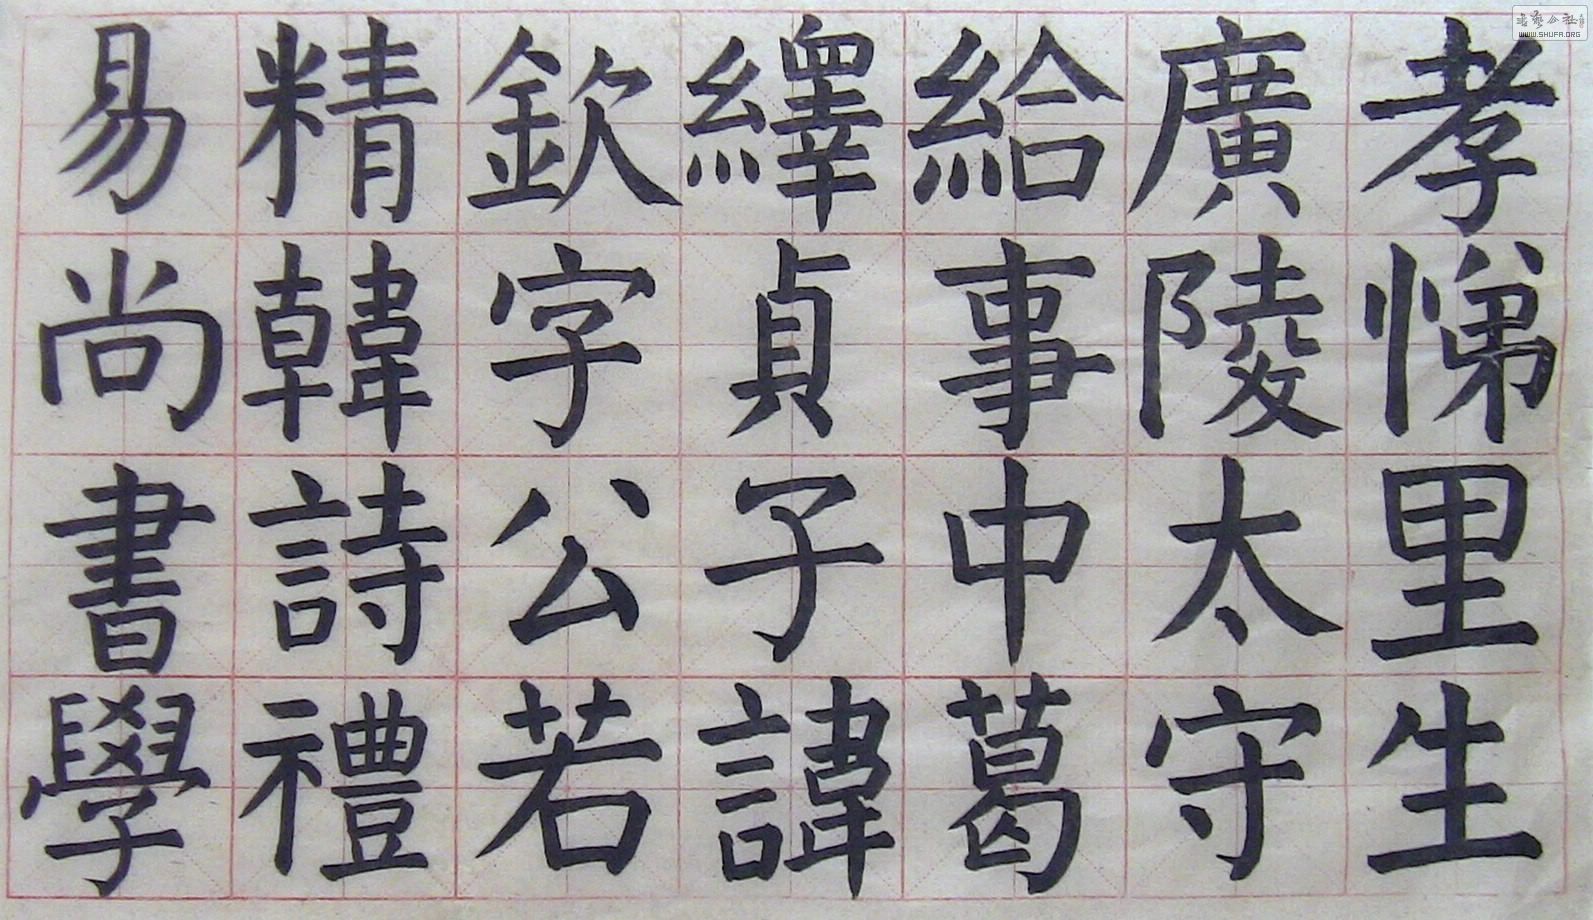 孝悌里生
廣陵太守
給事中葛
繹貞子諱
欽字公若
精韓詩禮
易尚書學
WWW.SHUFA.ORG